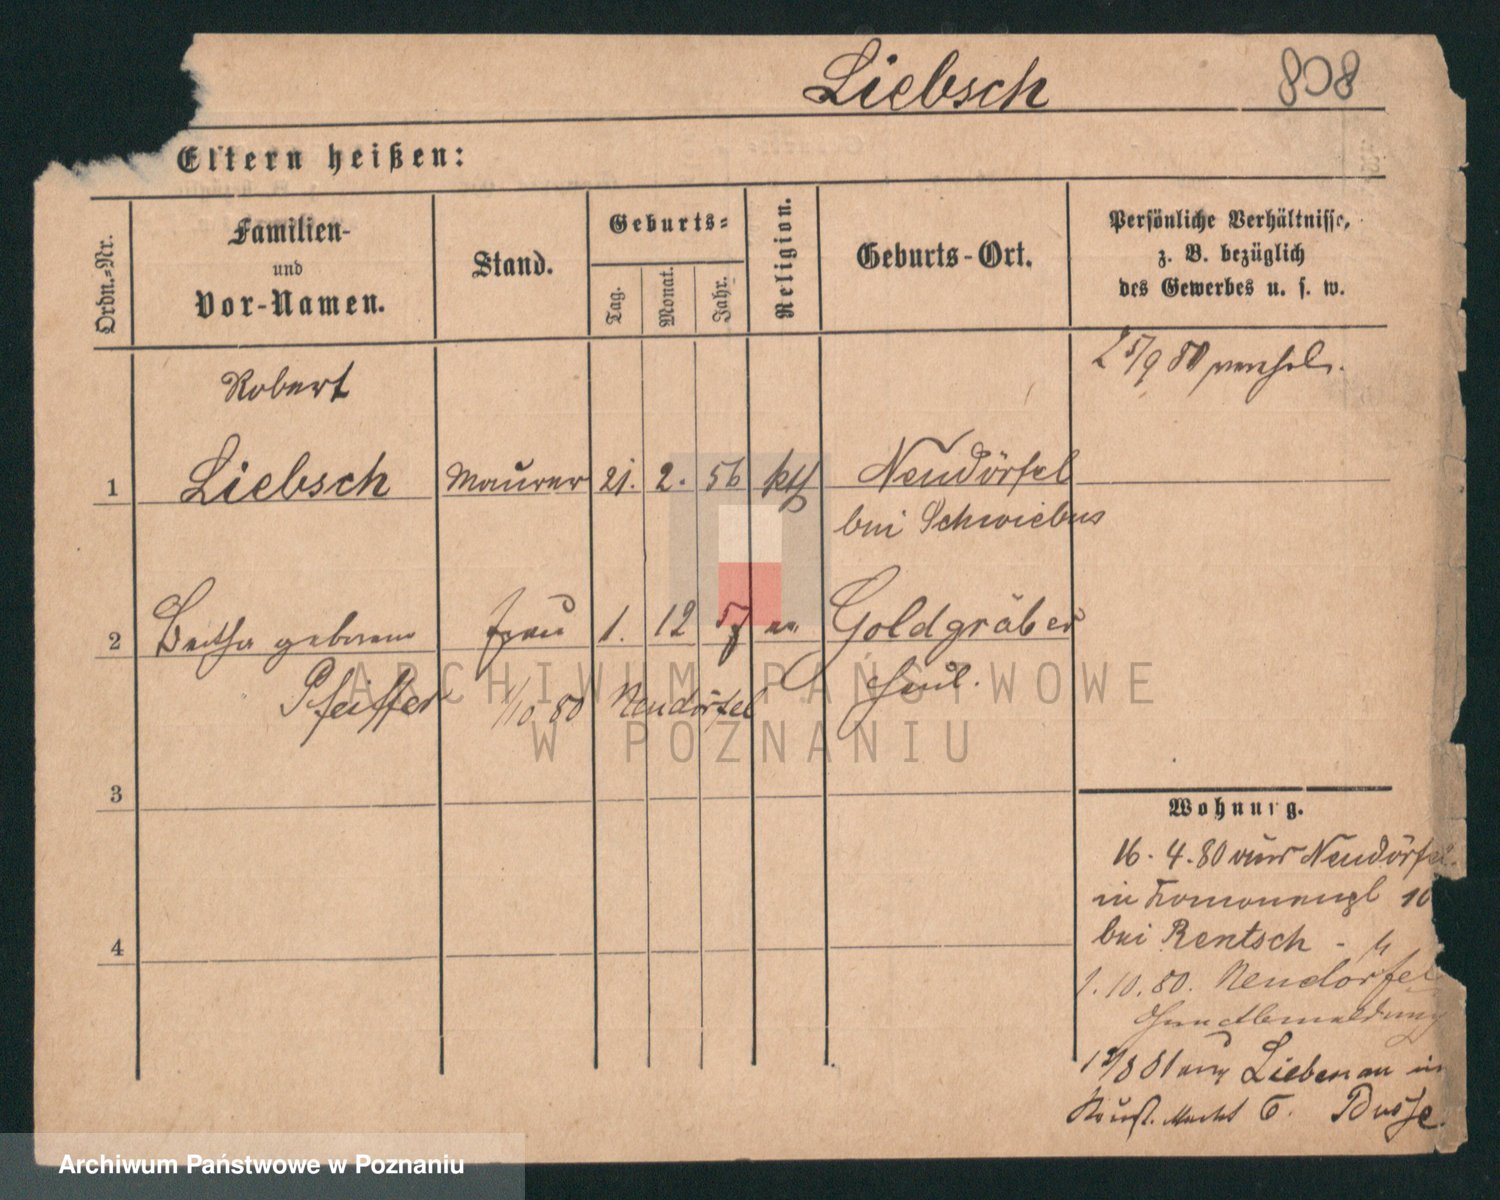 Liebsch 808
Eltern heißen:
Ordn.=Nr.
Familien-
und
Vor-Namen.
Stand.
Geburts=
Tag.
Monat.
Jahr.
Religion.
Geburts-Ort.
Persönliche Verhältnisse,
z. B. bezüglich
des Gewerbes u. s. w.
25/9 80
Robert
1 Liebsch Maurer 21. 2. 56 kth Neudörfel
bei Schwiebus
2 Bertha geborene Frau 1. 12 57 Goldgräber
Pfeiffer 1/10 80 Neudörfel Haul.
3
4
Wohnung.
16. 4. 80 aus Neudörfel
in 10
bei Rentsch
1. 10. 80. Neudörfel
ohne Abmeldung
81 aus Liebenau in
Neust. Markt 6. Busse.
ARCHIWUM PAŃSTWOWE
W POZNANIU
Archiwum Państwowe w Poznaniu